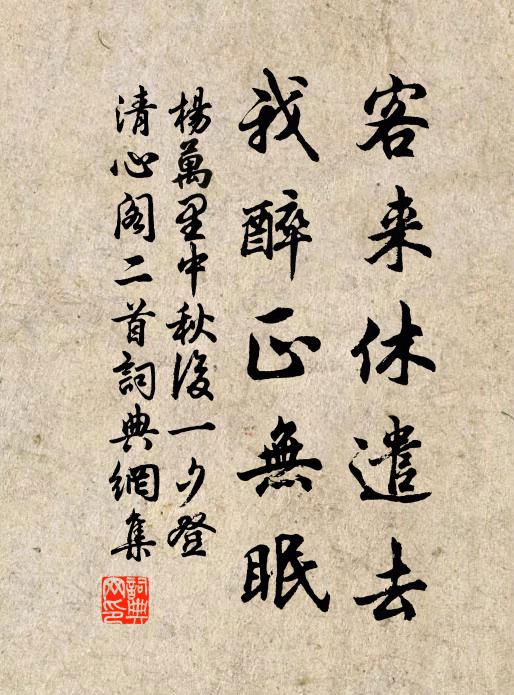 客来休遣去
我醉正無眠
楊萬里中秋後一夕登
清心閣二首詞典網集
詞典
网印